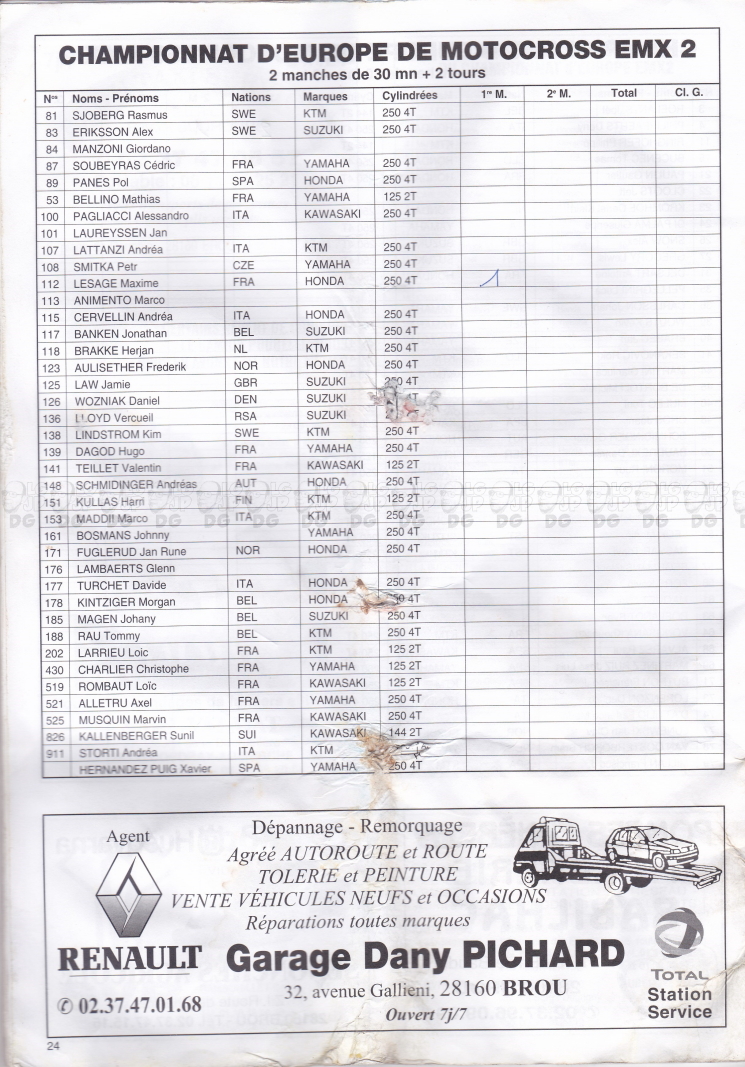 CHAMPIONNAT D'EUROPE DE MOTOCROSS EMX 2
2 manches de 30 mn + 2 tours
Nos Noms - Prénoms Nations Marques Cylindrées 1re M. 2e M. Total Cl. G.
81 SJOBERG Rasmus SWE KTM 250 4T
83 ERIKSSON Alex SWE SUZUKI 250 4T
84 MANZONI Giordano
87 SOUBEYRAS Cédric FRA YAMAHA 250 4T
89 PANES Pol SPA HONDA 250 4T
53 BELLINO Mathias FRA YAMAHA 125 2T
100 PAGLIACCI Alessandro ITA KAWASAKI 250 4T
101 LAUREYSSEN Jan
107 LATTANZI Andréa ITA KTM 250 4T
108 SMITKA Petr CZE YAMAHA 250 4T
112 LESAGE Maxime FRA HONDA 250 4T 1
113 ANIMENTO Marco
115 CERVELLIN Andréa ITA HONDA 250 4T
117 BANKEN Jonathan BEL SUZUKI 250 4T
118 BRAKKE Herjan NL KTM 250 4T
123 AULISETHER Frederik NOR HONDA 250 4T
125 LAW Jamie GBR SUZUKI 250 4T
126 WOZNIAK Daniel DEN SUZUKI 4T
136 LLOYD Vercueil RSA SUZUKI
138 LINDSTROM Kim SWE KTM 250 4T
139 DAGOD Hugo FRA YAMAHA 250 4T
141 TEILLET Valentin FRA KAWASAKI 125 2T
148 SCHMIDINGER Andréas AUT HONDA 250 4T
151 KULLAS Harri FIN KTM 125 2T
153 MADDII Marco ITA KTM 250 4T
161 BOSMANS Johnny YAMAHA 250 4T
171 FUGLERUD Jan Rune NOR HONDA 250 4T
176 LAMBAERTS Glenn
177 TURCHET Davide ITA HONDA 250 4T
178 KINTZIGER Morgan BEL HONDA 250 4T
185 MAGEN Johany BEL SUZUKI 250 4T
188 RAU Tommy BEL KTM 250 4T
202 LARRIEU Loic FRA KTM 125 2T
430 CHARLIER Christophe FRA YAMAHA 125 2T
519 ROMBAUT Loïc FRA KAWASAKI 125 2T
521 ALLETRU Axel FRA YAMAHA 250 4T
525 MUSQUIN Marvin FRA KAWASAKI 250 4T
826 KALLENBERGER Sunil SUI KAWASAKI 144 2T
911 STORTI Andréa ITA KTM
HERNANDEZ PUIG Xavier SPA YAMAHA 250 4T
Agent
RENAULT
✆ 02.37.47.01.68
Dépannage - Remorquage
Agréé AUTOROUTE et ROUTE
TOLERIE et PEINTURE
VENTE VÉHICULES NEUFS et OCCASIONS
Réparations toutes marques
Garage Dany PICHARD
32, avenue Gallieni, 28160 BROU
Ouvert 7j/7
TOTAL
Station
Service
24